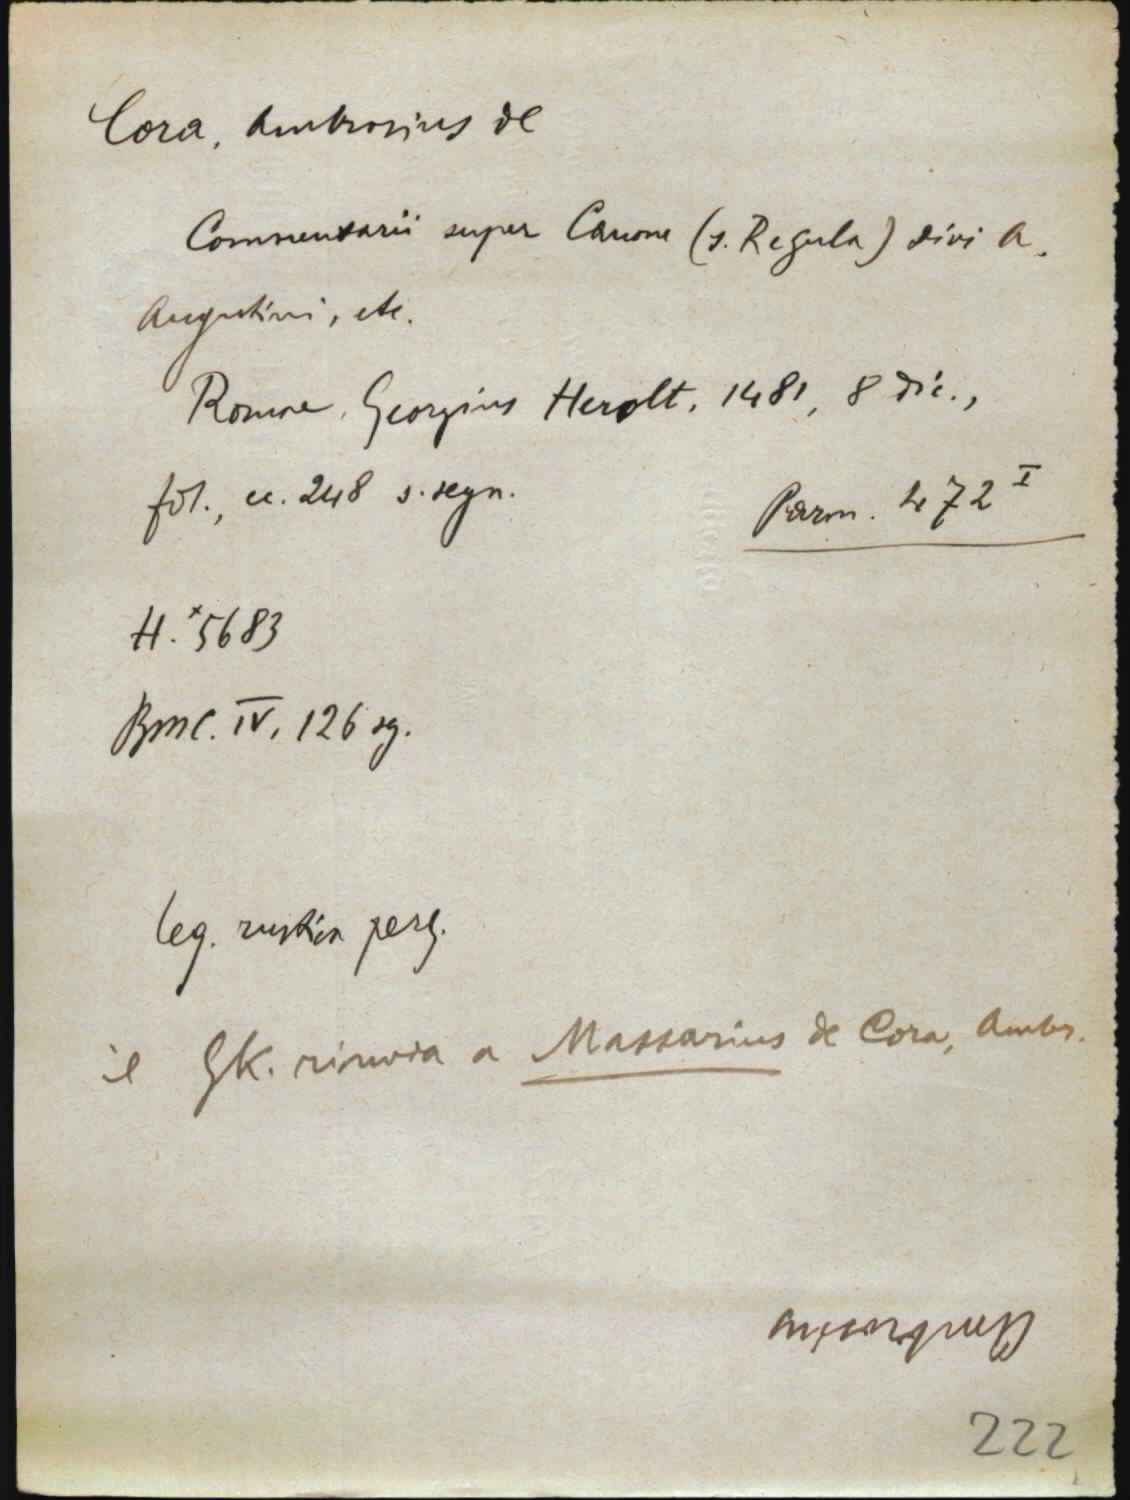 Cora, Ambrosius de
Commentarii super Canone (s. Regula) divi A.
Augustini, etc.
Romae, Georgius Herolt, 1481, 8 dic.,
fol., cc. 248 s. segn.
Parm. 472 I
H. *5683
BMC. IV, 126 sg.
leg. rustica perg.
il GK. rinvia a Massarius de Cora, Ambr.
222